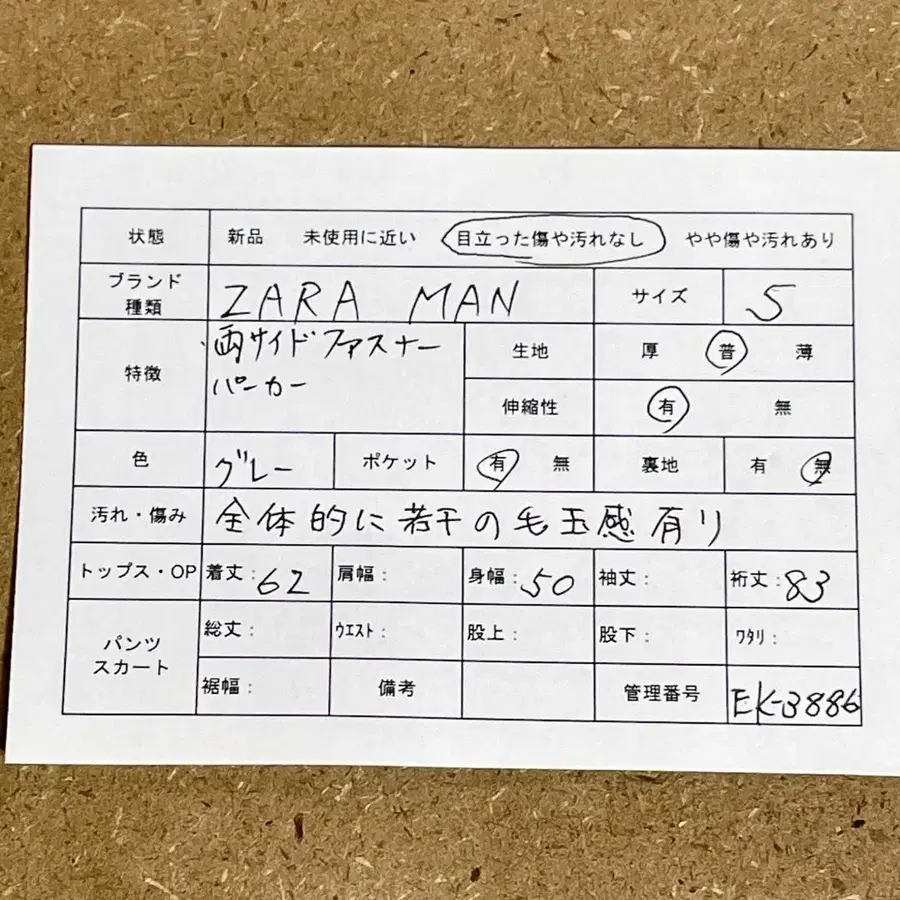 状態 新品 未使用に近い 目立った傷や汚れなし やや傷や汚れあり
ブランド
種類 ZARA MAN サイズ S
特徴 両サイドファスナー
パーカー
生地 厚 普 薄
伸縮性 有 無
色 グレー ポケット 有 無 裏地 有 無
汚れ・傷み 全体的に若干の毛玉感有り
トップス・OP 着丈:62 肩幅: 身幅:50 袖丈: 裄丈:83
パンツ
スカート
総丈: ウエスト: 股上: 股下: ワタリ:
裾幅: 備考 管理番号 EK-3886